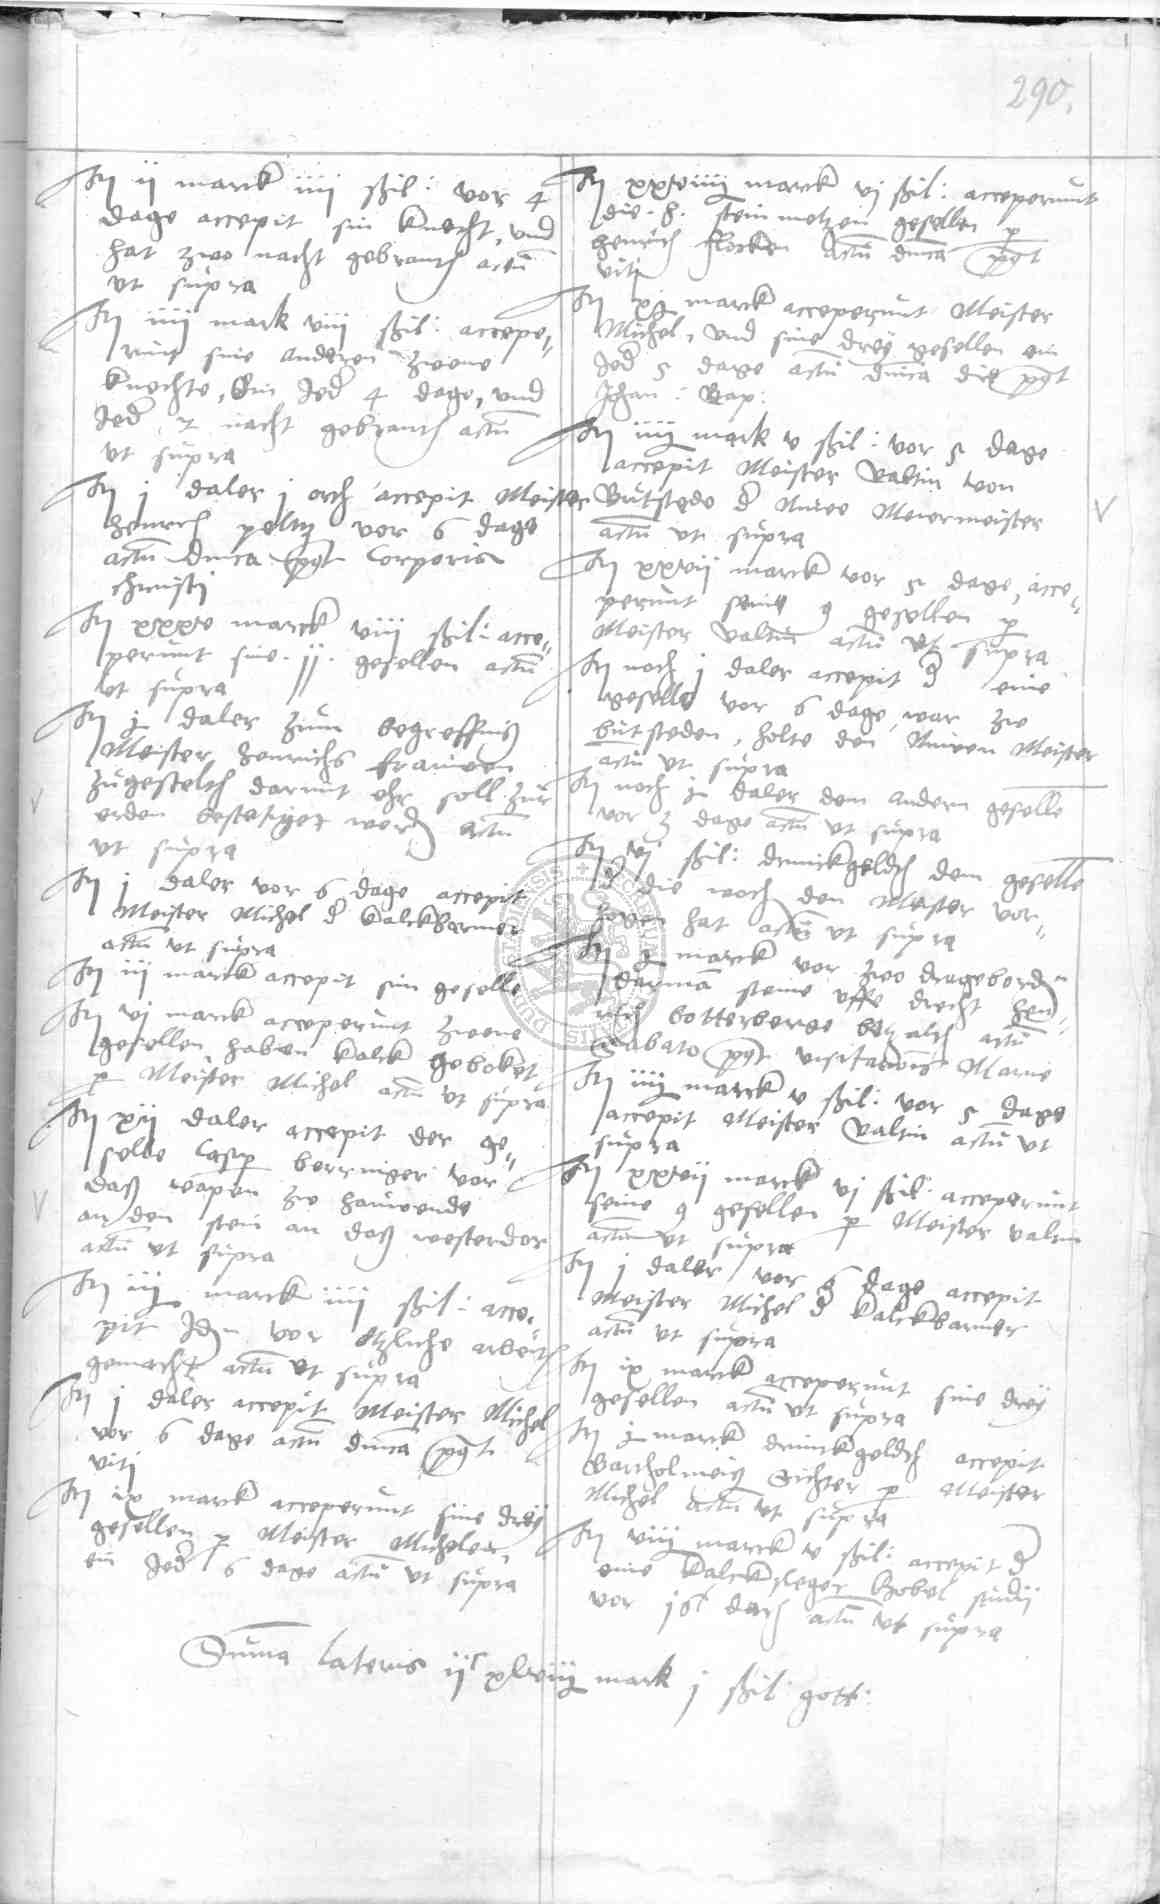 290.
It ij marck iiij ßzil: vor 4
dage accepit sin knecht, und
hat zwo nacht gebranth actū
ut supra
It iiij mark viij ßzil: accepe-
runt sine anderen zweene
knechte, ein Jed 4 dage, und
Jed 2 nacht gebranth actū
ut supra
It j daler j orth accepit Meister
Henrich peltz vor 6 dage
actū dnīca pt Corporis
christi
It xxxv marck viij ßzil: acce-
perunt sine 11 gesellen actū
ut supra
It j daler zum begreffnis
Meister Henrichs frauwen
zugestelth darmit ehr soll zur
erden bestetiget werd actū
ut supra
It j daler vor 6 dage accepit
Meister Michel d kalckbarner
actū ut supra
It iij marck accepit sin geselle
It vj marck acceperunt zweene
gesellen haben kalck geboket
p Meister Michel actū ut supra
It xij daler accepit der ge-
selle Casp berringer vor
daß wapen zo hauwende
an den stein an daß westerdor
actū ut supra
It iij marck iiij ßzil: acce-
pit Id vor etzliche arbeith
gemacht actū ut supra
It j daler accepit Meister Michel
vor 6 dage actū dnīca pt
viti
It ix marck acceperunt sine drey
gesellen p Meister Michelen,
ein Jed 6 dage actū ut supra
It xxviiij marck vj ßzil: acceperunt
die 8 steinmetzen gesellen p
Henrich flocken actū dnīca pt
viti
It marck acceperunt Meister
Michel, und sine drey gesellen ein
Jed 5 dage actū dnīca die pt
Johan: Bap:
It iiij mark v ßzil: vor 5 dage
accepit Meister Valtin von
Butstede d Nuwe Meiermeister
actū ut supra
It xxvij marck vor 5 dage, acce-
perunt seine 9 gesellen p
Meister Valtin actū ut supra
It noch j daler accepit d eine
geselle vor 6 dage, war zo
butsteden, holte den Nuwen Meister
actū ut supra
It noch daler dem andern geselle
vor 3 dage actū ut supra
It vj ßzil: drinckgeldth dem geselle
d die noch den Meister vor-
hat actū ut supra
It marck vor zwo drageborden
darmā steine uffe drecht Hen-
rich botterberge betzalth actū
Sabato pt visitationis Marie
It iiij marck v ßzil: vor 5 dage
accepit Meister Valtin actū ut
supra
It xxvij marck vj ßzil: acceperunt
seine 9 gesellen p Meister Valtin
actū ut supra
It j daler vor 6 dage accepit
Meister Michel d kalckbarner
actū ut supra
It ix marck acceperunt sine drey
gesellen actū ut supra
It marck drinckgeldth accepit
Bartholmeis Richter p Meister
Michel actū ut supra
It viij marck v ßzil: accepit d
eine kalcksleger
vor dach actū ut supra
Suma lateris ijc xlviij mark j ßzil: gott: